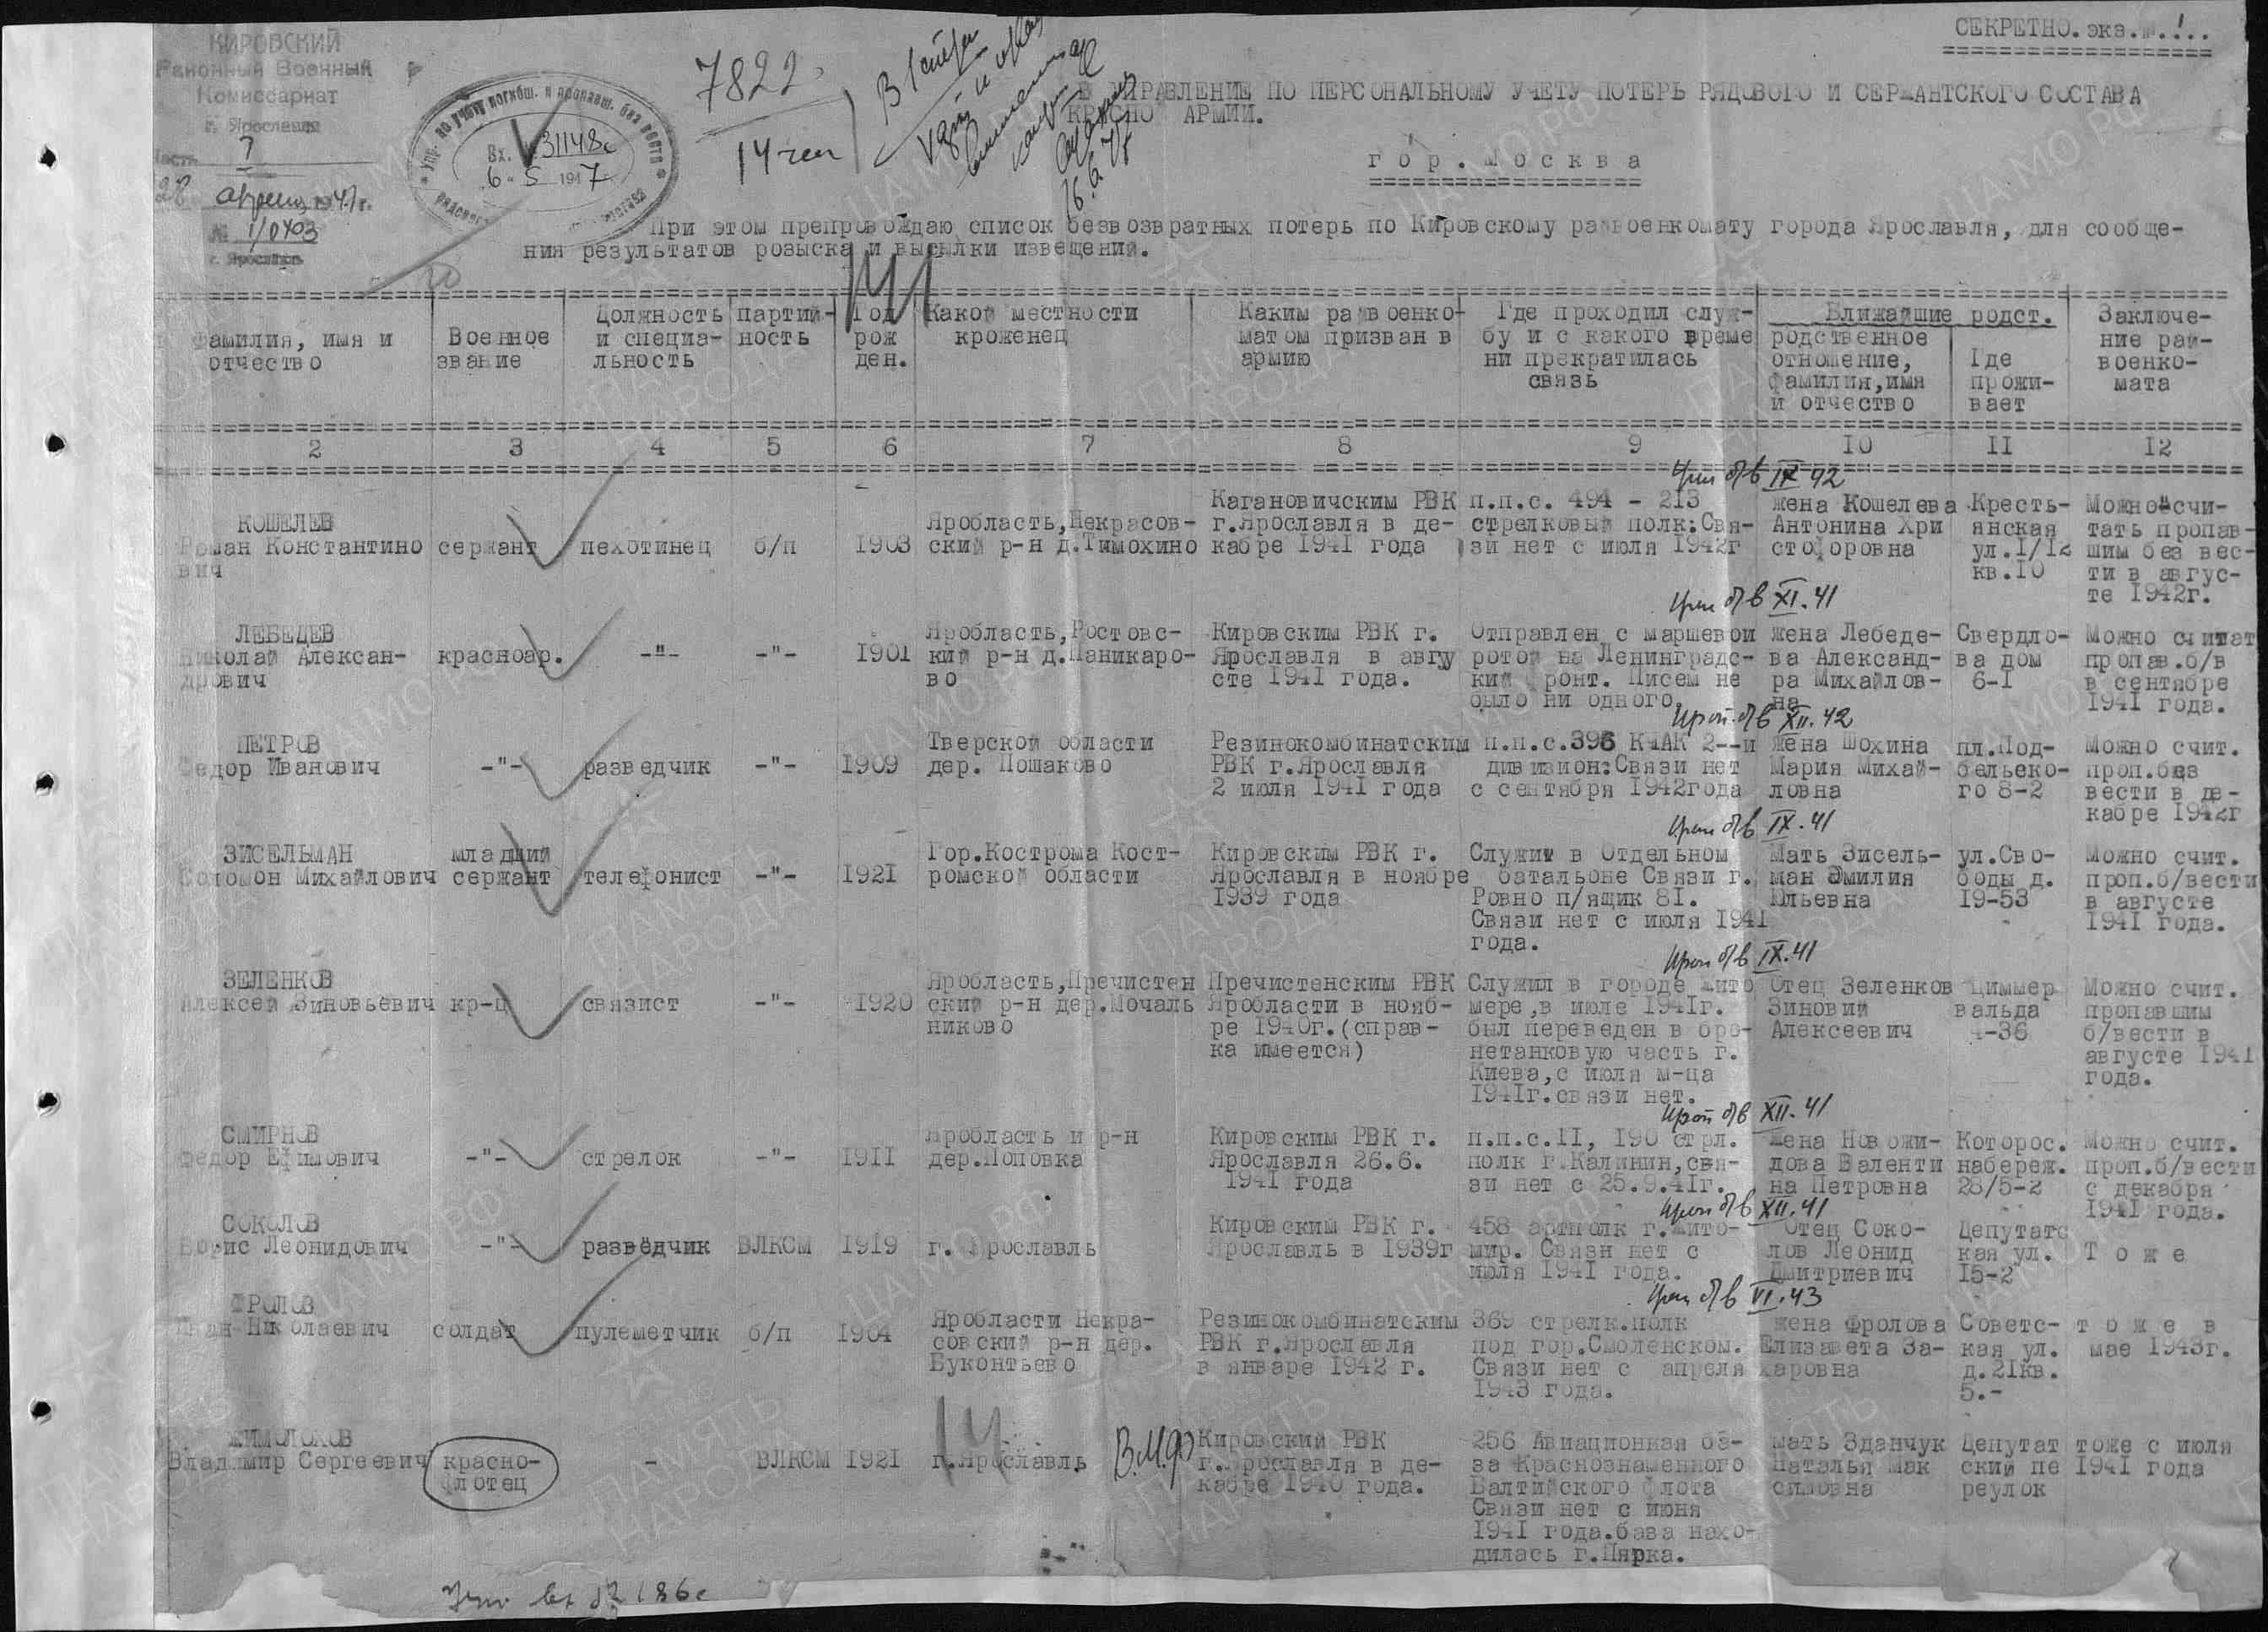 СЕКРЕТНО. экз.
КИРОВСКИЙ
Районный Военный
Комиссариат
г. Ярославля
Часть 7
28 1947 г.
№ 1/0403
г. Ярославль
Упр. по учёту погибш. и пропавш. без вести
Вх. 31148с
6. 5 1947
7822
14 чел
В УПРАВЛЕНИЕ ПО ПЕРСОНАЛЬНОМУ УЧЕТУ ПОТЕРЬ РЯДОВОГО И СЕРЖАНТСКОГО СОСТАВА
КРАСНОЙ АРМИИ.
гор. Москва
При этом препровождаю список безвозвратных потерь по Кировскому райвоенкомату города Ярославля, для сообще-
ния результатов розыска и высылки извещений.
Фамилия, имя и
отчество
Военное
звание
Должность
и специа-
льность
партий-
ность
Год
рож
ден.
Какой местности
уроженец
Каким райвоенко-
матом призван в
армию
Где проходил служ-
бу и с какого време
ни прекратилась
связь
Ближайшие родст.
родственное
отношение,
фамилия,имя
и отчество
Где
прожи-
вает
Заключе-
ние рай-
военко-
мата
2 3 4 5 6 7 8 9 10 11 12
Проп б/в IX 42
КОШЕЛЕВ
Роман Константино
вич
сержант
пехотинец
б/п
1903
Яробласть,Некрасов-
ский р-н д.Тимохино
Кагановичским РВК
г.Ярославля в де-
кабре 1941 года
п.п.с. 494 - 213
стрелковый полк:Свя-
зи нет с июля 1942г
жена Кошелева
Антонина Хри
стофоровна
Кресть-
янская
ул.1/12
кв.10
Можно счи-
тать пропав-
шим без вес-
ти в авгус-
те 1942г.
Проп б/в XI.41
ЛЕБЕДЕВ
Николай Алексан-
дрович
красноар.
-"-
-"-
1901
Яробласть,Ростовс-
кий р-н д.Паникаро-
во
Кировским РВК г.
Ярославля в авгу
сте 1941 года.
Отправлен с маршевой
ротой на Ленинградс-
кий фронт. Писем не
было ни одного.
жена Лебеде-
ва Александ-
ра Михайлов-
на
Свердло-
ва дом
6-1
Можно считат
пропав.б/в
в сентябре
1941 года.
Проп. б/в XII.42
ПЕТРОВ
Федор Иванович
-"-
разведчик
-"-
1909
Тверской области
дер. Пошаково
Резинокомбинатским
РВК г.Ярославля
2 июля 1941 года
п.п.с.396 КЧАК 2--й
дивизион:Связи нет
с сентября 1942года
жена Шохина
Мария Михай-
ловна
пл.Под-
бельско-
го 8-2
Можно счит.
проп.без
вести в де-
кабре 1942г
Проп б/в IX.41
ЗИСЕЛЬМАН
Соломон Михайлович
младший
сержант
телефонист
-"-
1921
Гор.Кострома Кост-
ромской области
Кировским РВК г.
Ярославля в ноябре
1939 года
Служит в Отдельном
батальоне Связи г.
Ровно п/ящик 81.
Связи нет с июля 1941
года.
Мать Зисель-
ман Эмилия
Юльевна
ул.Сво-
боды д.
19-53
Можно счит.
проп.б/вести
в августе
1941 года.
Проп б/в IX.41
ЗЕЛЕНКОВ
Алексей Зиновьевич
кр-ц
связист
-"-
1920
Яробласть,Пречистен
ский р-н дер.Мочаль
никово
Пречистенским РВК
Яробласти в нояб-
ре 1940г.(справ-
ка имеется)
Служил в городе Жито
мере,в июле 1941г.
был переведен в бро-
нетанковую часть г.
Киева,с июля м-ца
1941г.связи нет.
Отец Зеленков
Зиновий
Алексеевич
Циммер
вальда
-36
Можно счит.
пропавшим
б/вести в
августе 1941
года.
Проп б/в XII.41
СМИРНОВ
Федор Ефимович
-"-
стрелок
-"-
1911
Яробласть и р-н
дер.Поповка
Кировским РВК г.
Ярославля 26.6.
1941 года
п.п.с.11, 190 стрл.
полк г.Калинин,свя-
зи нет с 25.9.41г.
жена Новожи-
лова Валенти
на Петровна
Которос.
набереж.
28/5-2
Можно счит.
проп.б/вести
с декабря
1941 года.
Проп б/в XII.41
СОКОЛОВ
Борис Леонидович
-"-
разведчик
ВЛКСМ
1919
г. Ярославль
Кировским РВК г.
Ярославль в 1939г
458 артполк г.Жито-
мир. Связи нет с
июля 1941 года.
Отец Соко-
лов Леонид
Дмитриевич
Депутатс
кая ул.
15-2
Т о ж е
Проп б/в VI.43
ФРОЛОВ
Иван Николаевич
солдат
пулеметчик
б/п
1904
Яробласти Некра-
совский р-н дер.
Буконтьево
Резинокомбинатским
РВК г.Ярославля
в январе 1942 г.
369 стрелк.полк
под гор.Смоленском.
Связи нет с апреля
1943 года.
жена Фролова
Елизавета За-
харовна
Советс-
кая ул.
д.21кв.
5.-
т о ж е в
мае 1943г.
ЖИМОЛОКОВ
Владимир Сергеевич
красно-
флотец
-
ВЛКСМ
1921
г.Ярославль
14
В.М.Ф
Кировский РВК
г.Ярославля в де-
кабре 1940 года.
256 Авиационная ба-
за Краснознаменного
Балтийского флота
Связи нет с июня
1941 года.база нахо-
дилась г.Пярка.
мать Зданчук
Наталья Мак
симовна
Депутат
ский пе
реулок
тоже с июля
1941 года